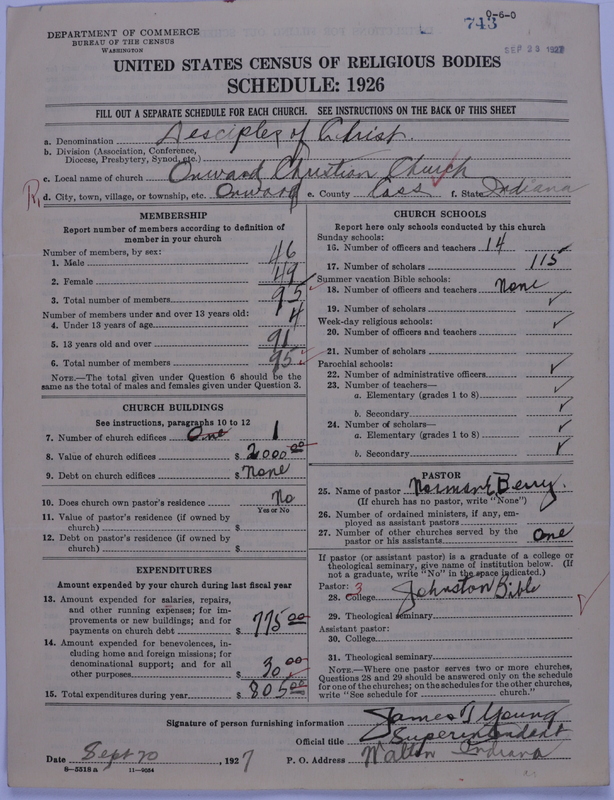 0-6-0
743
SEP 23 1927
DEPARTMENT OF COMMERCE
BUREAU OF THE CENSUS
WASHINGTON
UNITED STATES CENSUS OF RELIGIOUS BODIES
SCHEDULE: 1926
FILL OUT A SEPARATE SCHEDULE FOR EACH CHURCH. SEE INSTRUCTIONS ON THE BACK OF THIS SHEET
a. Denomination Desciples of Christ.
b. Division (Association, Conference, Diocese, Presbytery, Synod, etc.)
c. Local name of church Onward Christian Church
R1 d. City, town, village, or township, etc. Onward e. County Cass f. State Indiana
MEMBERSHIP
Report number of members according to definition of
member in your church
Number of members, by sex:
1. Male 46
2. Female 49
3. Total number of members 95
Number of members under and over 13 years old:
4. Under 13 years of age 4
5. 13 years old and over 91
6. Total number of members 95
NOTE.—The total given under Question 6 should be the
same as the total of males and females given under Question 3.
CHURCH BUILDINGS
See instructions, paragraphs 10 to 12
7. Number of church edifices One 1
8. Value of church edifices $ 2000.00
9. Debt on church edifices $ None
10. Does church own pastor's residence No
Yes or No
11. Value of pastor's residence (if owned by
church) $
12. Debt on pastor's residence (if owned by
church) $
EXPENDITURES
Amount expended by your church during last fiscal year
13. Amount expended for salaries, repairs,
and other running expenses; for im-
provements or new buildings; and for
payments on church debt $ 775.00
14. Amount expended for benevolences, in-
cluding home and foreign missions; for
denominational support; and for all
other purposes $ 30.00
15. Total expenditures during year $ 805.00
CHURCH SCHOOLS
Report here only schools conducted by this church
Sunday schools:
16. Number of officers and teachers 14
17. Number of scholars 115
Summer vacation Bible schools:
18. Number of officers and teachers None
19. Number of scholars
Week-day religious schools:
20. Number of officers and teachers
21. Number of scholars
Parochial schools:
22. Number of administrative officers
23. Number of teachers—
a. Elementary (grades 1 to 8)
b. Secondary
24. Number of scholars—
a. Elementary (grades 1 to 8)
b. Secondary
PASTOR
25. Name of pastor Norman E Berry.
(If church has no pastor, write "None")
26. Number of ordained ministers, if any, em-
ployed as assistant pastors
27. Number of other churches served by the
pastor or his assistants One
If pastor (or assistant pastor) is a graduate of a college or
theological seminary, give name of institution below. (If
not a graduate, write "No" in the space indicated.)
Pastor: 3
28. College Johnston Bible
29. Theological seminary
Assistant pastor:
30. College
31. Theological seminary
NOTE.—Where one pastor serves two or more churches,
Questions 28 and 29 should be answered only on the schedule
for one of the churches; on the schedules for the other churches,
write "See schedule for church."
Signature of person furnishing information James J Young
Official title Superintendant
Date Sept 20, 1927 P. O. Address Walton Indiana
8-5518 a 11-9054